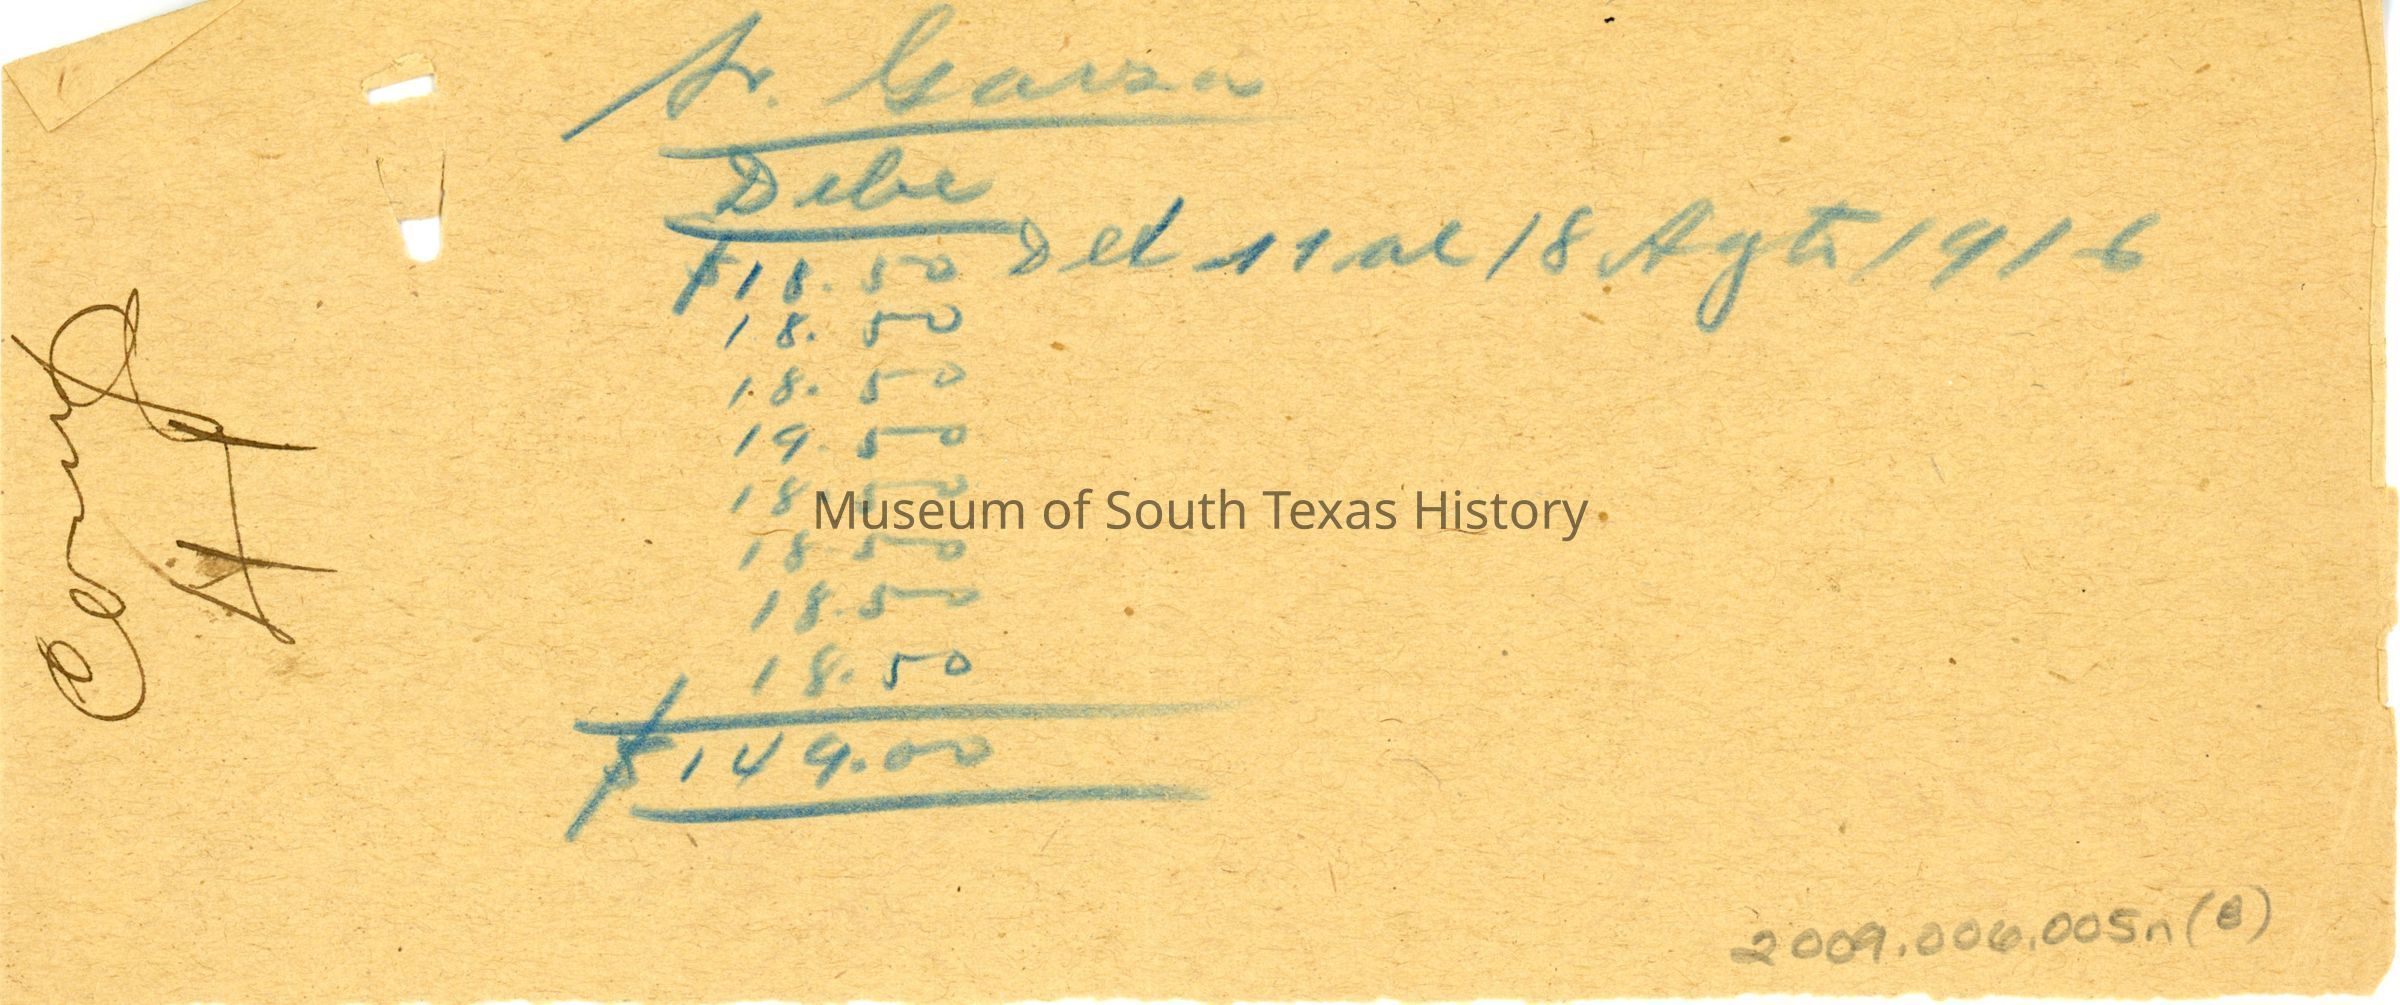 Sr. Garza
Debe
$18.50 Del 11 al 18 Agto 1916
18.50
18.50
19.50
18.50
18.50
18.50
18.50
$149.00
Museum of South Texas History
2009.006.005n(B)